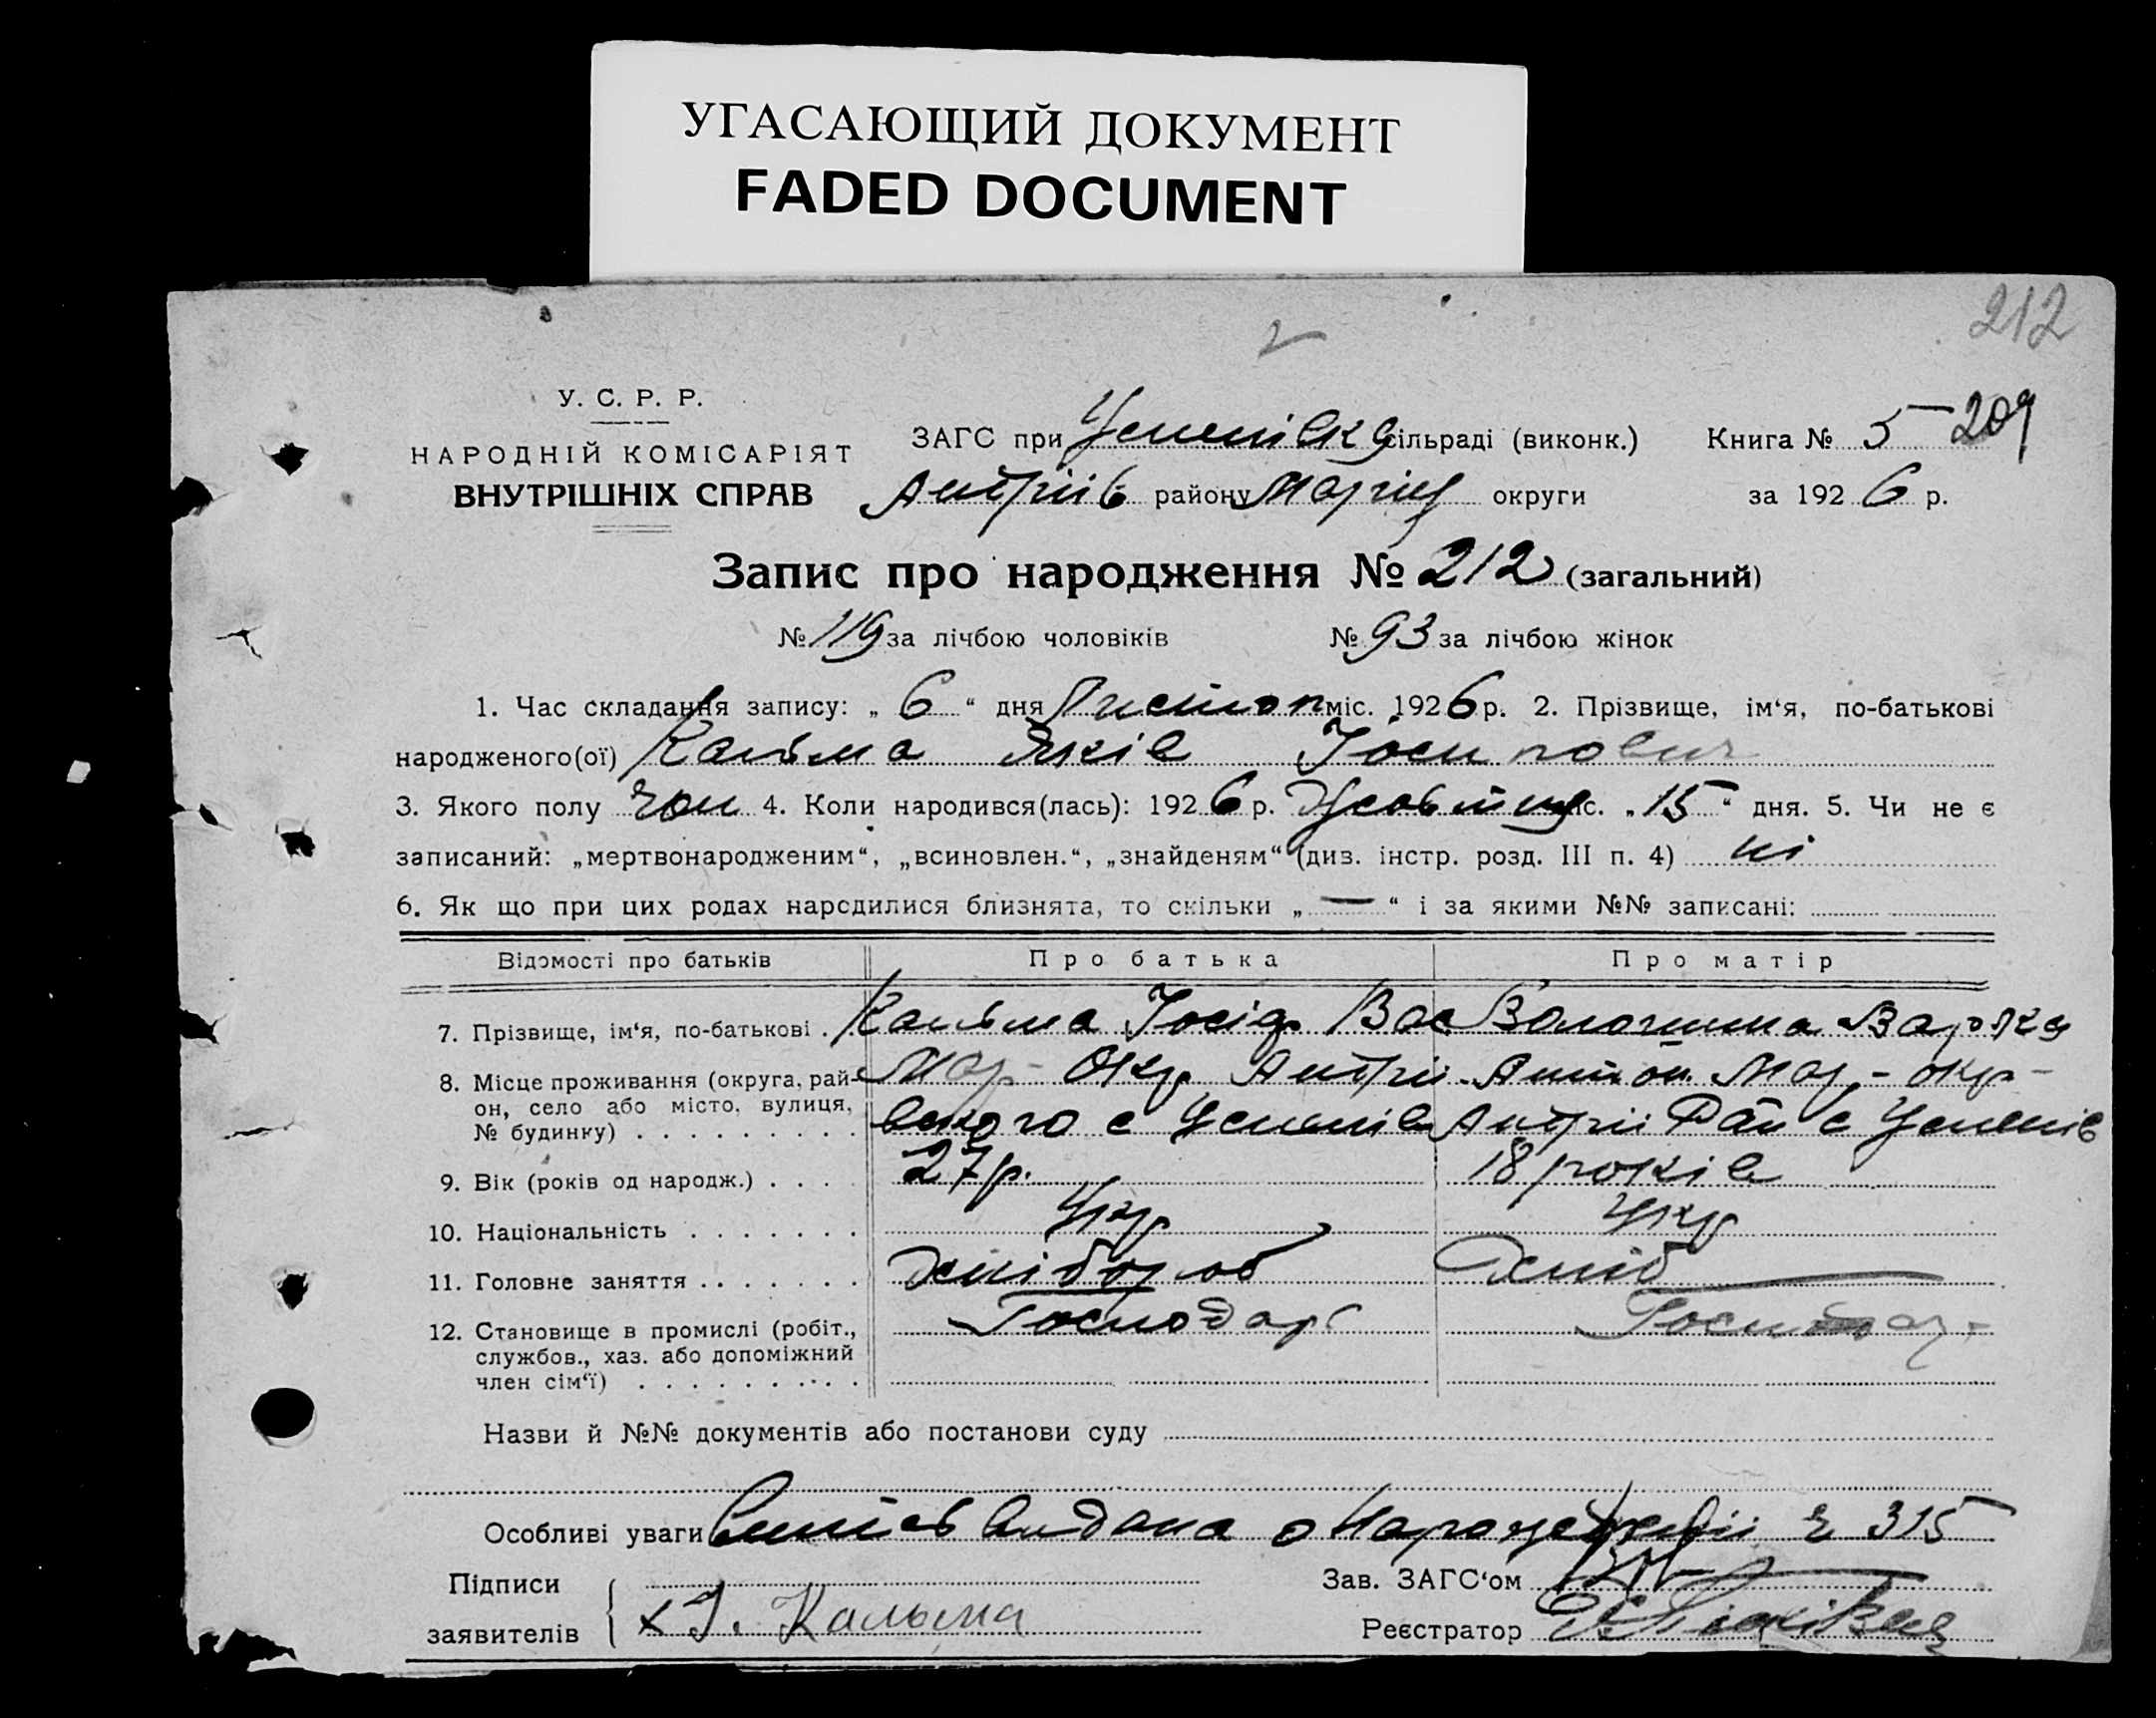 УГАСАЮЩИЙ ДОКУМЕНТ
FADED DOCUMENT
212
У. С. Р. Р.
НАРОДНІЙ КОМІСАРІЯТ
ВНУТРІШНІХ СПРАВ
ЗАГС при Успенівка сільраді (виконк.)
Книга № 5 209
Андріїв району Маріуп округи
за 1926 р.
Запис про народження № 212 (загальний)
№ 119 за лічбою чоловіків № 93 за лічбою жінок
1. Час складання запису: „ 6 “ дня Листоп міс. 1926 р. 2. Прізвище, ім‘я, по-батькові
народженого(ої) Кальма Яків Йосипович
3. Якого полу чол 4. Коли народився(лась): 1926 р. Жовтня міс. „15“ дня. 5. Чи не є
записаний: „мертвонародженим“, „всиновлен.“, „знайденям“ (див. інстр. розд. III п. 4) ні
6. Як що при цих родах народилися близнята, то скільки „ — “ і за якими №№ записані:
Відомості про батьків Про батька Про матір
7. Прізвище, ім‘я, по-батькові . Кальма Йосип Вас Волошина Варька
8. Місце проживання (округа, район, село або місто, вулиця, № будинку) Мар- Окр Андрії Антон Мар- окр-
с Успенів Андрії Рай с Успенів
9. Вік (років од народж.) 27 р. 18 років
10. Національність Укр Укр
11. Головне заняття Хлібороб Хліб
12. Становище в промислі (робіт., Господар
службов., хаз. або допоміжний
член сім‘ї)
Назви й №№ документів або постанови суду
Особливі уваги видана о 315
Підписи
заявителів х Й. Кальма
Зав. ЗАГС‘ом
Реєстратор